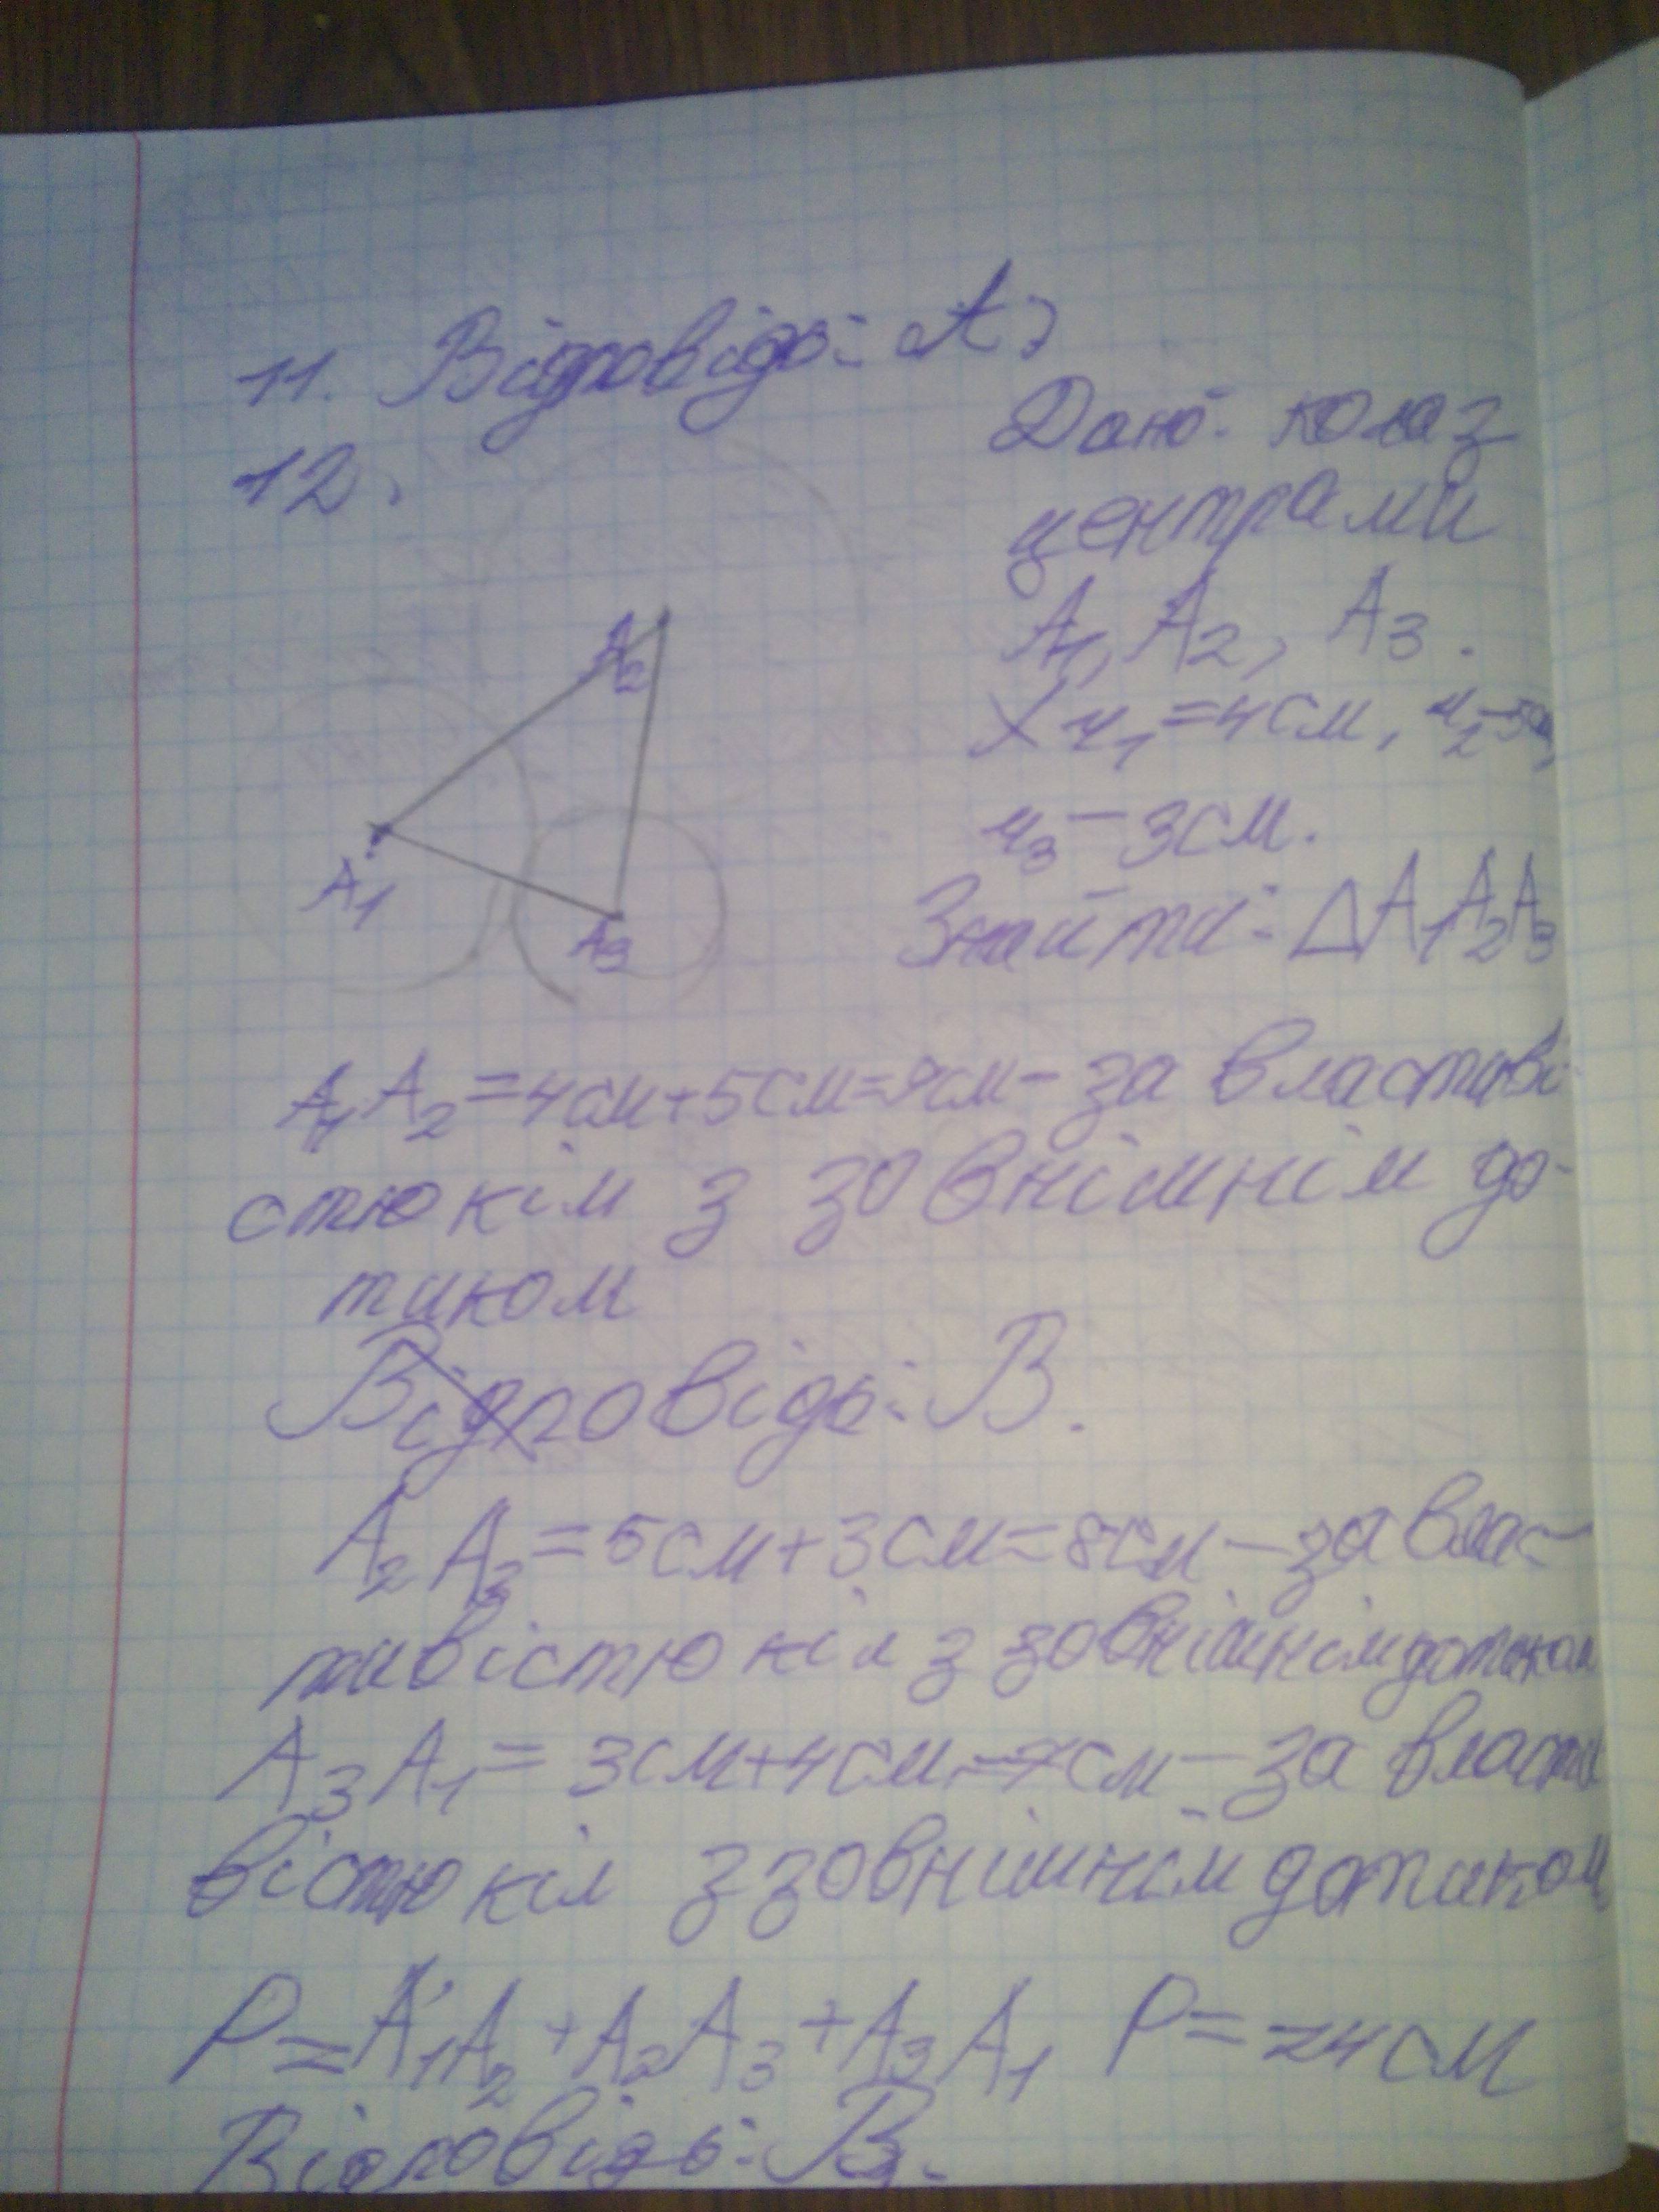 11. Відповідь: А)
12.
Дано: кола з
центрами
А1, А2, А3.
r1=4см, r2-5см,
r3-3см.
Знайти: ΔА1А2А3
А2
А1
А3
А1А2=4см+5см=9см- за властиві
стю кіл з зовнішнім до-
тиком
Відповідь: В.
А2А3=5см+3см=8см-за влас-
тивістю кіл з зовнішнім дотиком
А3А1= 3см+4см=7см- за власти
вістю кіл з зовнішнім дотиком
Р=А1А2+А2А3+А3А1 Р=24см
Відповідь: В.